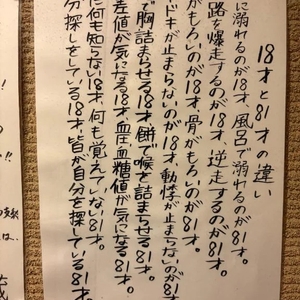 18才と81才の違い
に溺れるのが18才、風呂で溺れるのが81才。
路を爆走するのが18才、逆走するのが81才。
がもろいのが18才、骨がもろいのが81才。
ドキが止まらないのが18才、動悸が止まらないのが81才
で胸詰まらせる18才、餅で喉を詰まらせる81才。
差値が気になる18才、血圧・血糖値が気になる81才。
だ何も知らない18才、何も覚えていない81才。
分探しをしている18才、皆が自分を探している81才。
!!
は..